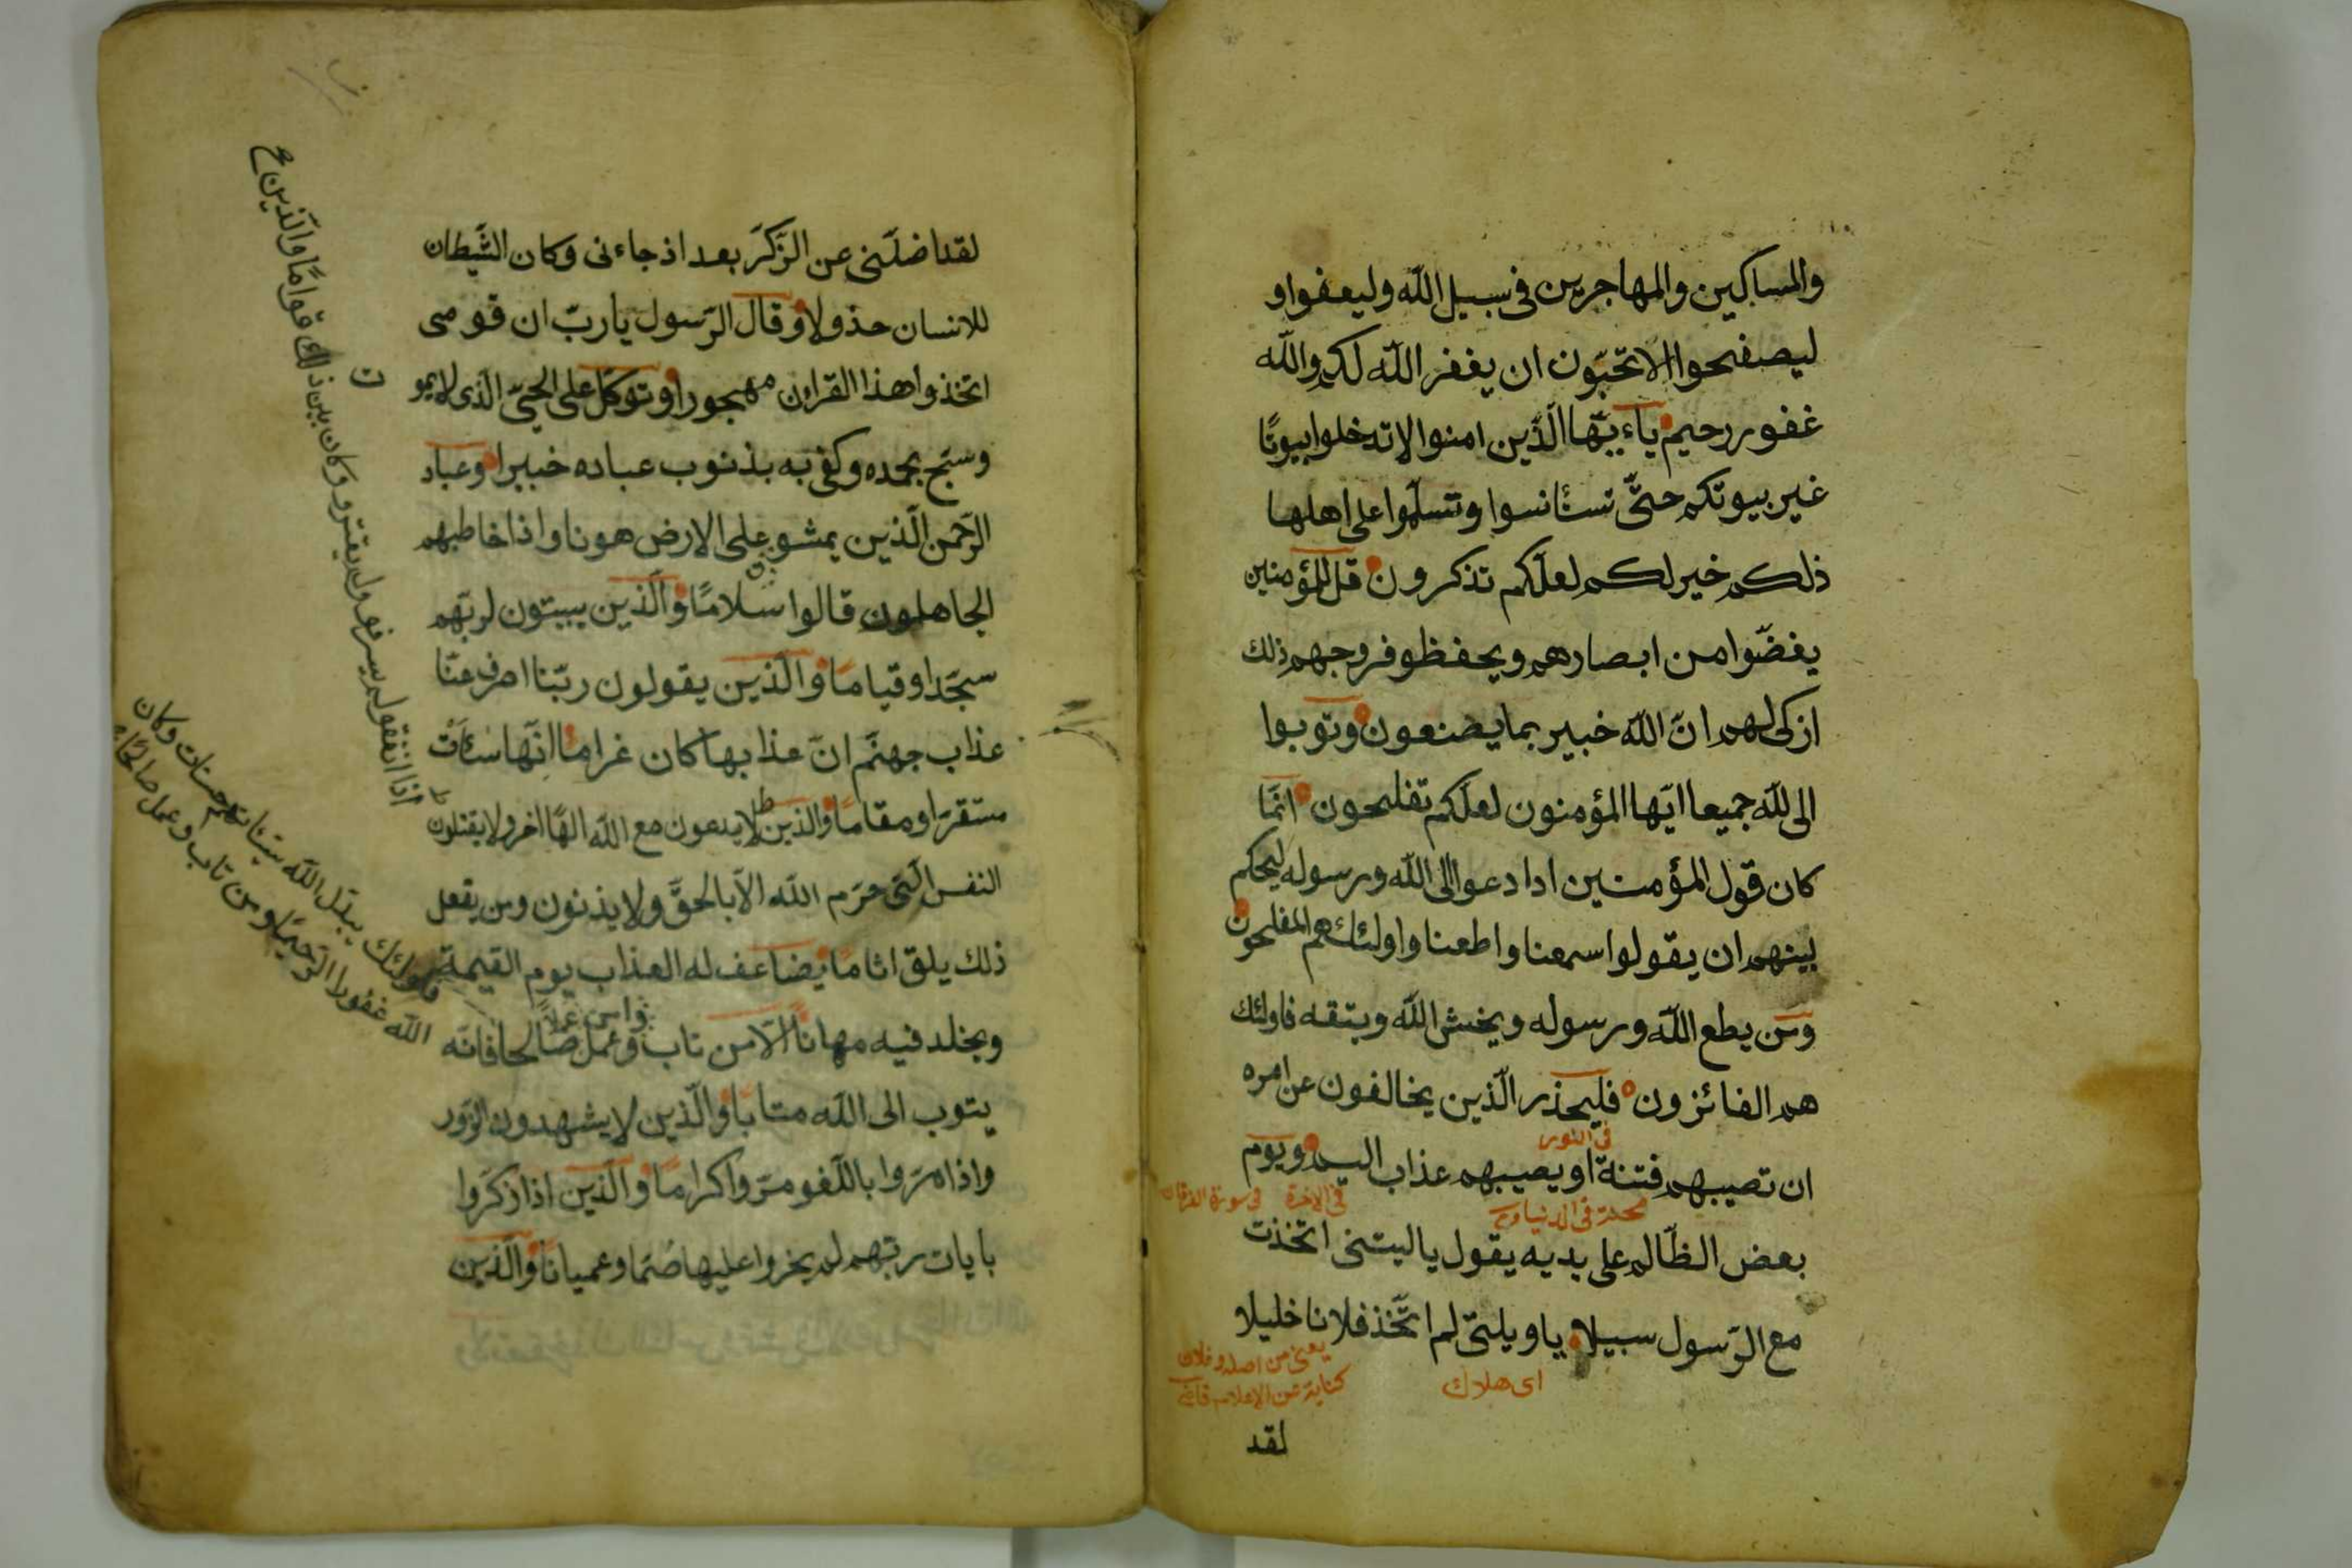 والمساكين والمهاجرين فى سبيل الله وليعفوا و
ليصفحوا الا تحبّون ان يغفر الله لكم والله
غفور رحيم ياءيّها الّذين امنوا لا تدخلوا بيوتًا
غير بيوتكم حتّى تستأنسوا وتسلّموا على اهلها
ذلكم خير لكم لعلّكم تذكرون قل للمؤمنين
يغضّوا من ابصارهم ويحفظو فروجهم ذلك
ازكى لهم انّ الله خبير بما يصنعون وتوبوا
الى لله جميعا ايّها المؤمنون لعلّكم تفلحون انّما
كان قول المؤمنين ادا دعوا الى الله ورسوله ليحكم
بينهم ان يقولوا سمعنا واطعنا واولئك هم المفلحون
ومن يطع الله ورسوله ويخش الله ويتقه فاولئك
هم الفائزون فليحذر الّذين يخالفون عن امره
فى النور
ان تصيبهم فتنة او يصيبهم عذاب اليم ويوم
محنة فى الدنيا فى الاخرة فى سورة الفرقان
بعض الظّالم على يديه يقول ياليتنى اتّخذت
مع الرّسول سبيلا ياويلتى لم اتّخذ فلانا خليلا
اى هلاك
يعنى من اضله وفلان
كناية عن الاعلام قاضى
لقد
لقد اضلّنى عن الزّكر بعد اذ جاءنى وكان الشّيطان
للانسان حذولا وقال الرّسول ياربّ ان قومى
اتخذوا هذا القران مهجورا وتوكّل على الحىّ الّذى لا يمو
ت
وسبّح بحمده وكفى به بذنوب عباده خبيرا وعباد
الرّحمن الّذين يمشو على الارض هونا واذا خاطبهم
ن
الجاهلون قالوا سلامًا والّذين يبيتون لربّهم
سجّدا وقيامًا والّذين يقولون ربّنا اصرف عنّا
عذاب جهنّم انّ عذابها كان غراما انّها سائت
مستقرّا ومقامًا والذين لا يدعون مع الله الهًا اخر ولا يقتلون
النفس الّتى حرّم الله الّا بالحقّ ولا يذنون ومن يفعل
ذلك يلق اثامًا يضاعف له العذاب يوم القيمة
ويخلد فيه مهانًا الّا من تاب وعمل صالحا فانّه
وامن عملا
يتوب الى الله متابًا والّذين لا يشهدون الزّور
واذا مرّوا باللّغو مرّوا كرامًا والّذين اذا ذكّروا
بايات ربّهم لم يخروا عليها صُمّا وعميانًا والّذين
اذا انفقو لم يسرفو ولم يقترو وكان بين ذلك قوامًا والّذين
فاولئك يبدّل الله سيّئاتهم حسنات وكان
الله غفورا الرّحيمًا ومن تاب وعمل صالحًا